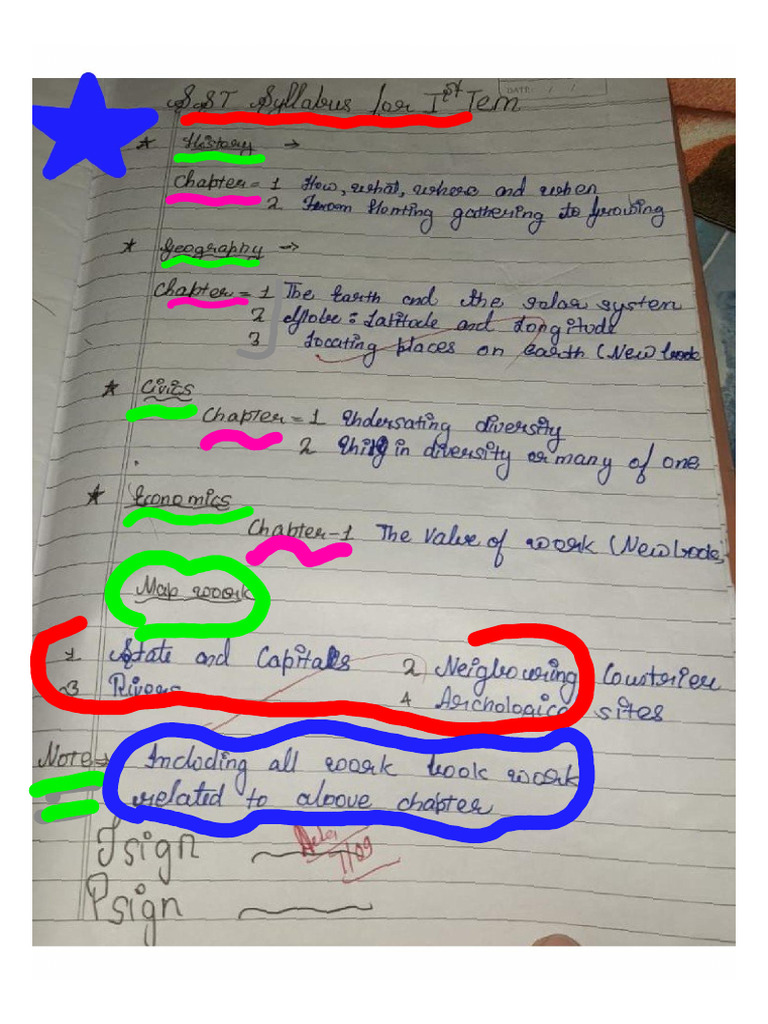 DATE: / /
SST Syllabus for Ist Tem
* History →
Chapter = 1 How, what, where and when
2 From Honting gathering to Growing
* Geography →
Chapter = 1 The Earth and the solar system
2 Globe : Latitude and Longitude
3 Locating places on earth (New book
* Civics
Chapter = 1 Undersating diversity
2 in diversity or many of one
* Economics
Chapter - 1 The Value of work (New book,
Map work
1 State and Capitals 2 Neigbouring Countries
3 Rivers 4 Archological sites
Note → Incloding all work book work
related to above chapter
Tsign
7/09
Psign